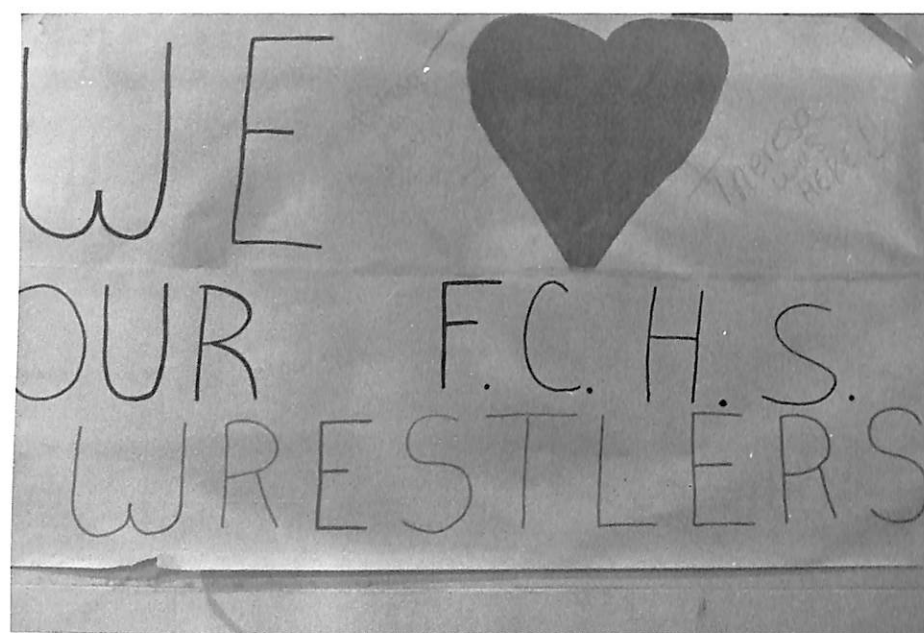 WE ♥
Theresa
was
HERE!
OUR F.C.H.S.
WRESTLERS